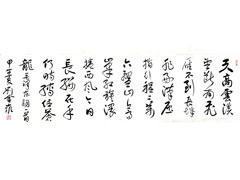 天高雲淡
望斷南飛
雁不到長城
非好漢屈
指行程二萬
六盤山上高
峰紅旗漫
捲西風今日
長纓在手
何時縛住蒼
龍毛澤東詞一首
甲